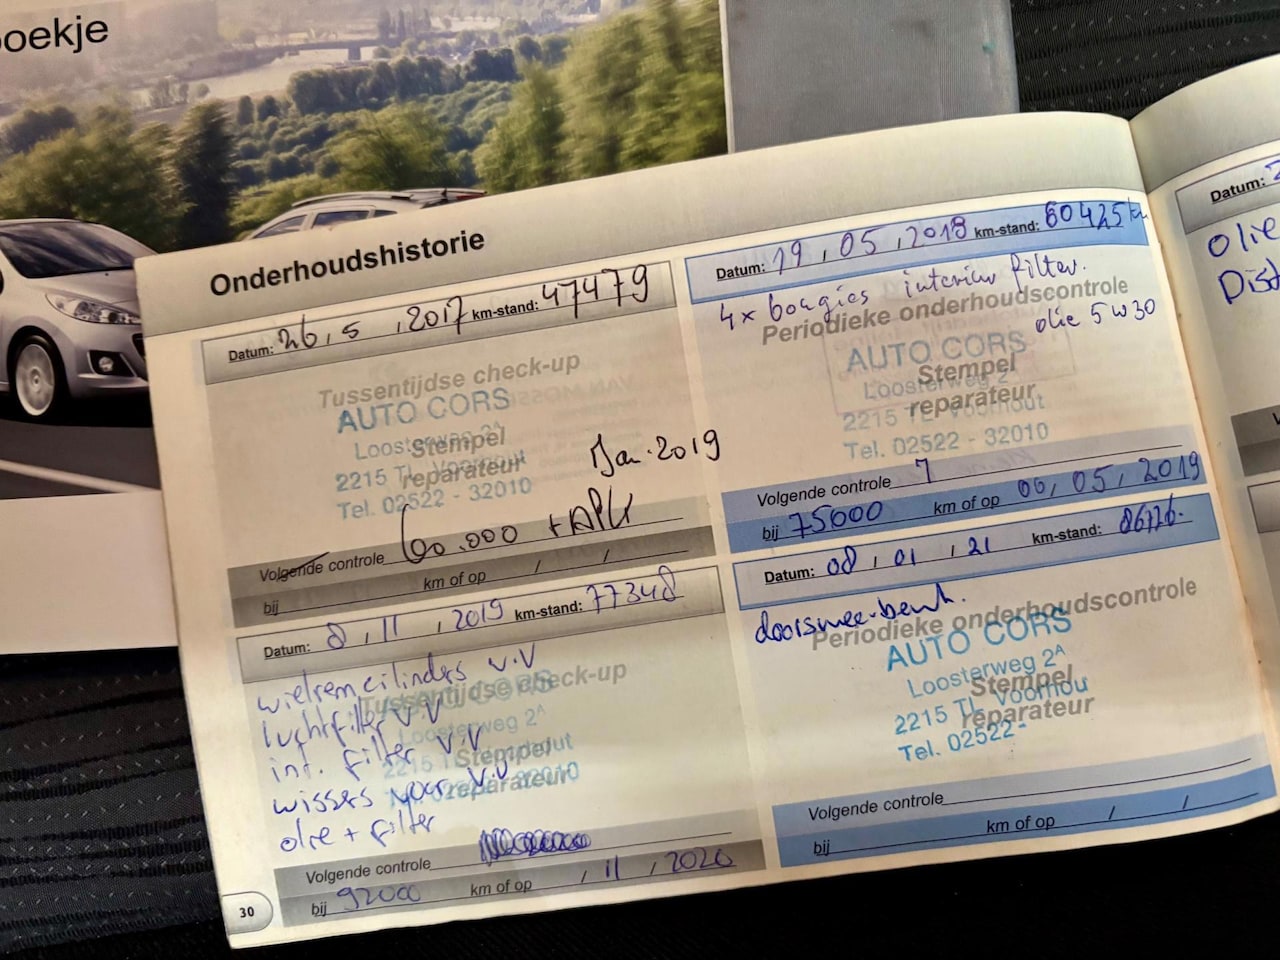 oekje
Onderhoudshistorie
Datum: 26, 5, 2017 km-stand: 47479
Tussentijdse check-up
AUTO CORS
Loosterweg 2A
Stempel
2215 TL Voorhout
reparateur
Tel. 02522 - 32010
Jan. 2019
Volgende controle 60.000 + APK
bij km of op / /
Datum: 19, 05, 2018 km-stand: 60425 km
4x bougies interieur filter.
Periodieke onderhoudscontrole
olie 5w30
AUTO CORS
Stempel
Loosterweg 2
reparateur
2215 TL Voorhout
Tel. 02522 - 32010
Volgende controle
bij 75000 km of op 06, 05, 2019
Datum: 8, 11, 2019 km-stand: 77348
wielremcilinders v.v
Tussentijdse check-up
luchtfilter v.v
Loosterweg 2A
int. filter v.v
Stempel
wissers voor v.v
reparateur
olie + filter
Volgende controle
bij 92000 km of op / 11, 2020
30
Datum: 08, 01, 21 km-stand: 86726.
doorsmee-beurt.
Periodieke onderhoudscontrole
AUTO CORS
Loosterweg 2A
Stempel
2215 TL Voorhou
reparateur
Tel. 02522-
Volgende controle
bij km of op / /
Datum: 2
olie
Dist